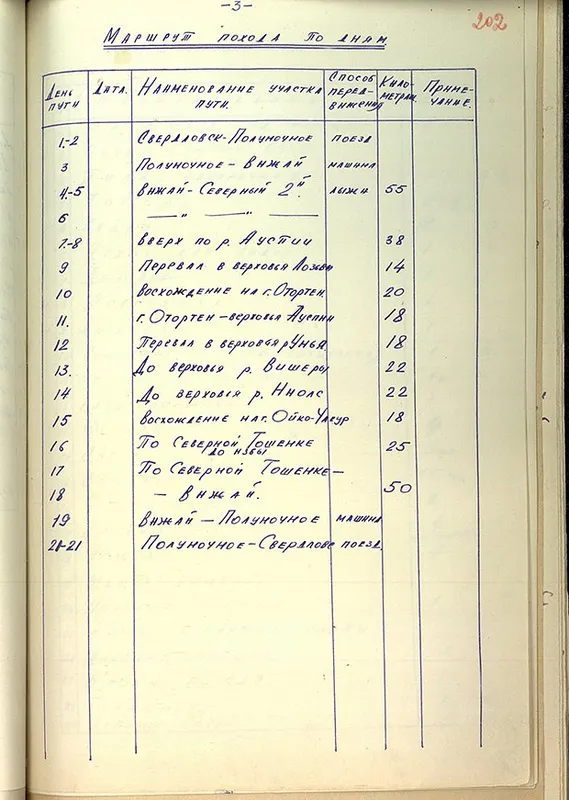 —3—
202
Маршрут похода по дням
День пути Дата. Наименование участка пути. Способ передвижения Километраж Примечание.
1.-2 Свердловск-Полуночное поезд
3 Полуночное — Вижай машина
4.-5 Вижай-Северный 2й. лыжи 55
6 — " — " —
7.-8 Вверх по р. Ауспии 38
9 Перевал в верховья Лозьвы 14
10 Восхождение на г. Отортен 20
11. г. Отортен — верховья Ауспии 18
12 Перевал в верховья р Унья 18
13. До верховья р. Вишеры 22
14 До верховья р. Ниолс 22
15 Восхождение на г. Ойко-Чакур 18
16 По Северной Тошемке до избы 25
17 По Северной Тошемке —
18 — Вижай. 50
19 Вижай — Полуночное машина
20-21 Полуночное-Свердловс поезд.